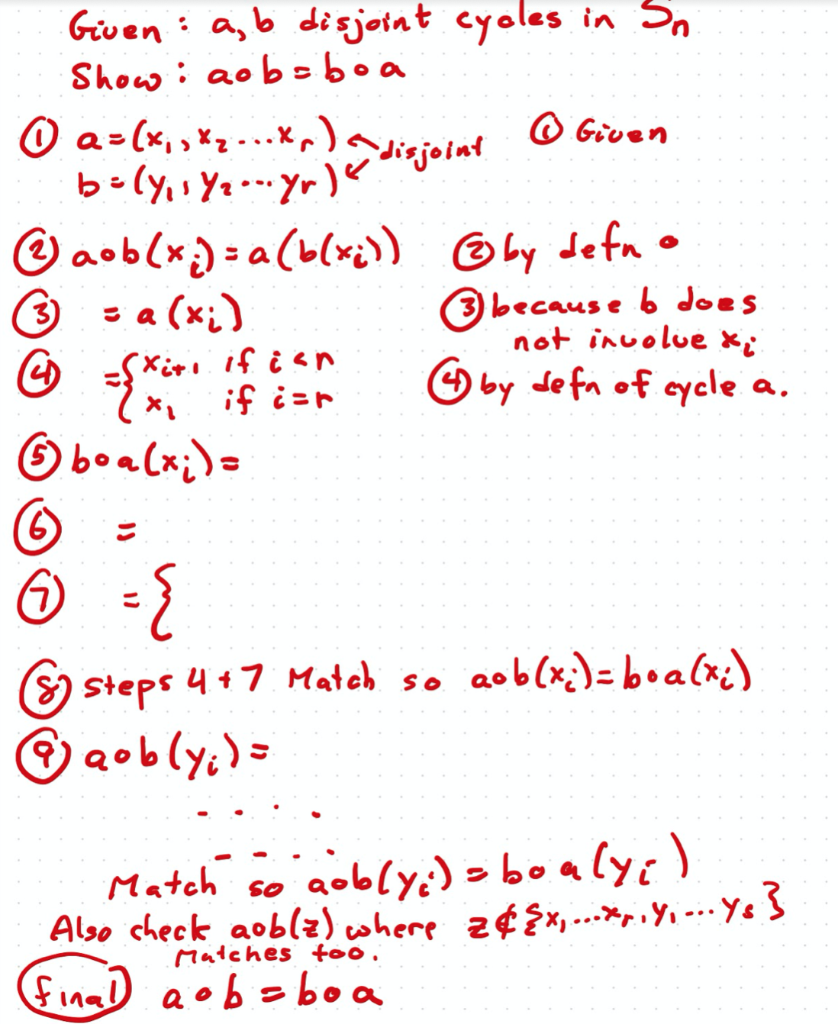 Given : a, b disjoint cycles in Sₙ
Show : a∘b = b∘a
① a = (x₁, x₂ ... xᵣ) disjoint ① Given
b = (y₁, y₂ ... yr)
② a∘b(xᵢ) = a(b(xᵢ)) ② by defn ∘
③ = a(xᵢ) ③ because b does
not involve xᵢ
④ = { xᵢ₊₁ if i < r ④ by defn of cycle a.
x₁ if i = r
⑤ b∘a(xᵢ) =
⑥ =
⑦ = {
⑧ steps 4 + 7 Match so a∘b(xᵢ) = b∘a(xᵢ)
⑨ a∘b(yᵢ) =
- - . .
- - . . .
Match so a∘b(yᵢ) = b∘a(yᵢ)
Also check a∘b(z) where z ∉ {x₁ ... xᵣ, y₁ ... yₛ}
Matches too.
final a∘b = b∘a